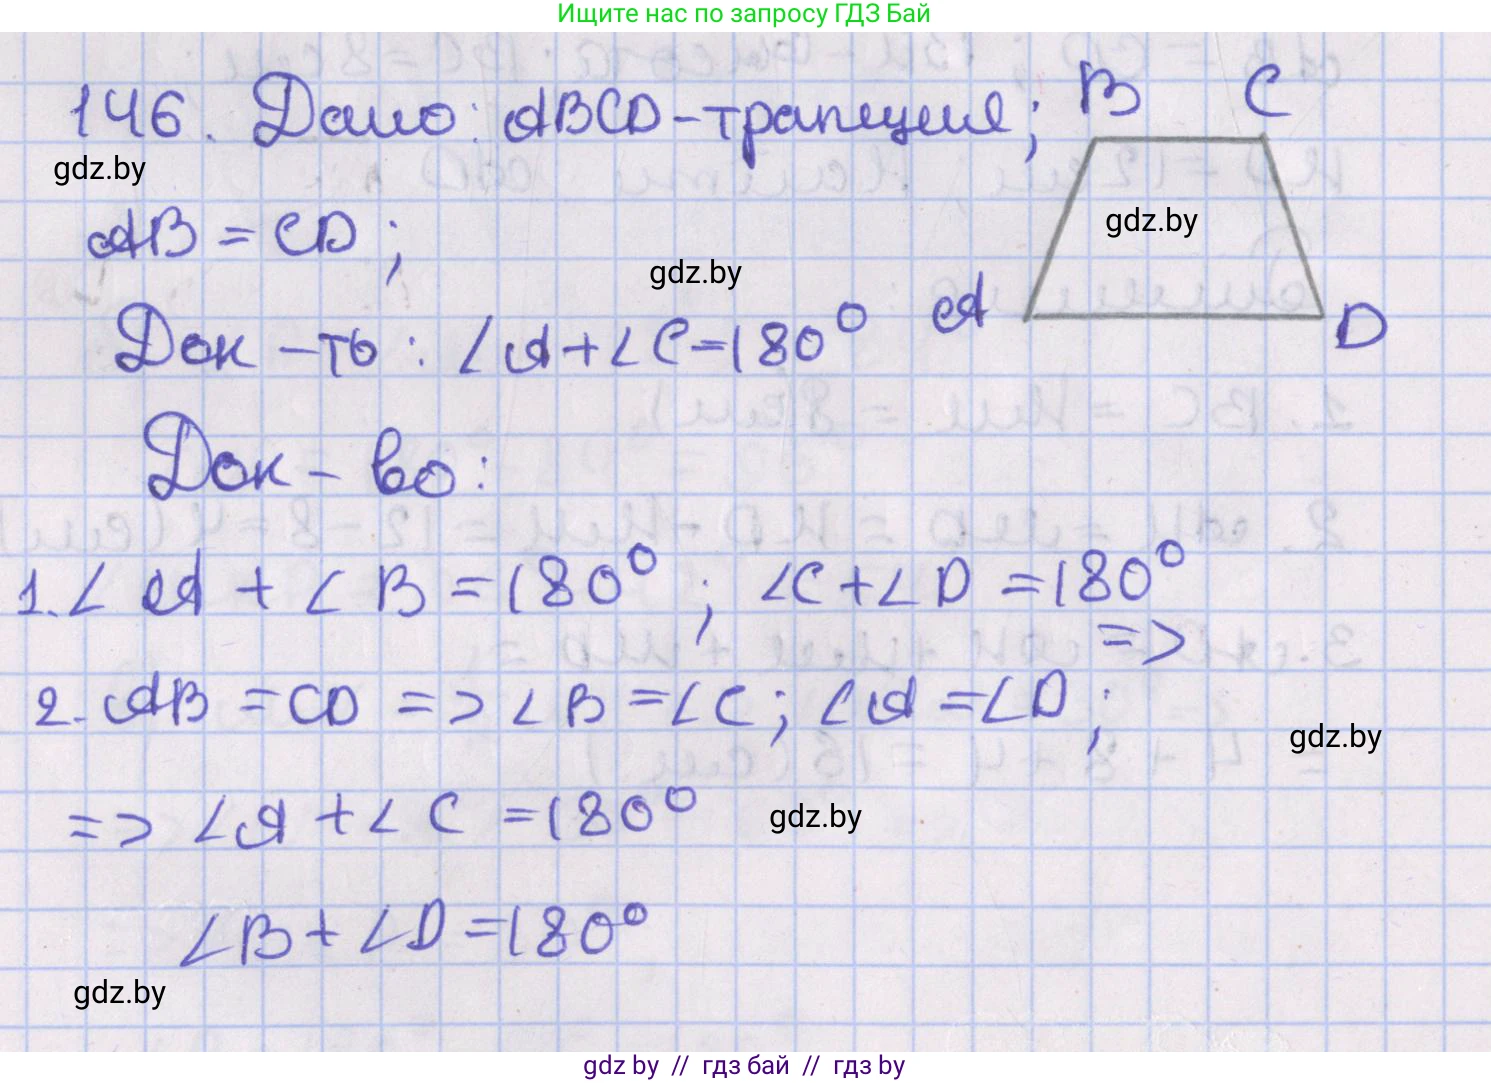 Ищите нас по запросу ГДЗ Бай
146. Дано: ABCD-трапеция; B C
gdz.by
gdz.by
AB = CD;
gdz.by
A D
Док-ть: ∠A+∠C=180°
Док-во:
1. ∠A + ∠B = 180°; ∠C+∠D = 180°
=>
2. AB = CD => ∠B = ∠C; ∠A = ∠D;
gdz.by
=> ∠A + ∠C = 180°
gdz.by
∠B + ∠D = 180°
gdz.by
gdz by // гдз бай // гдз by